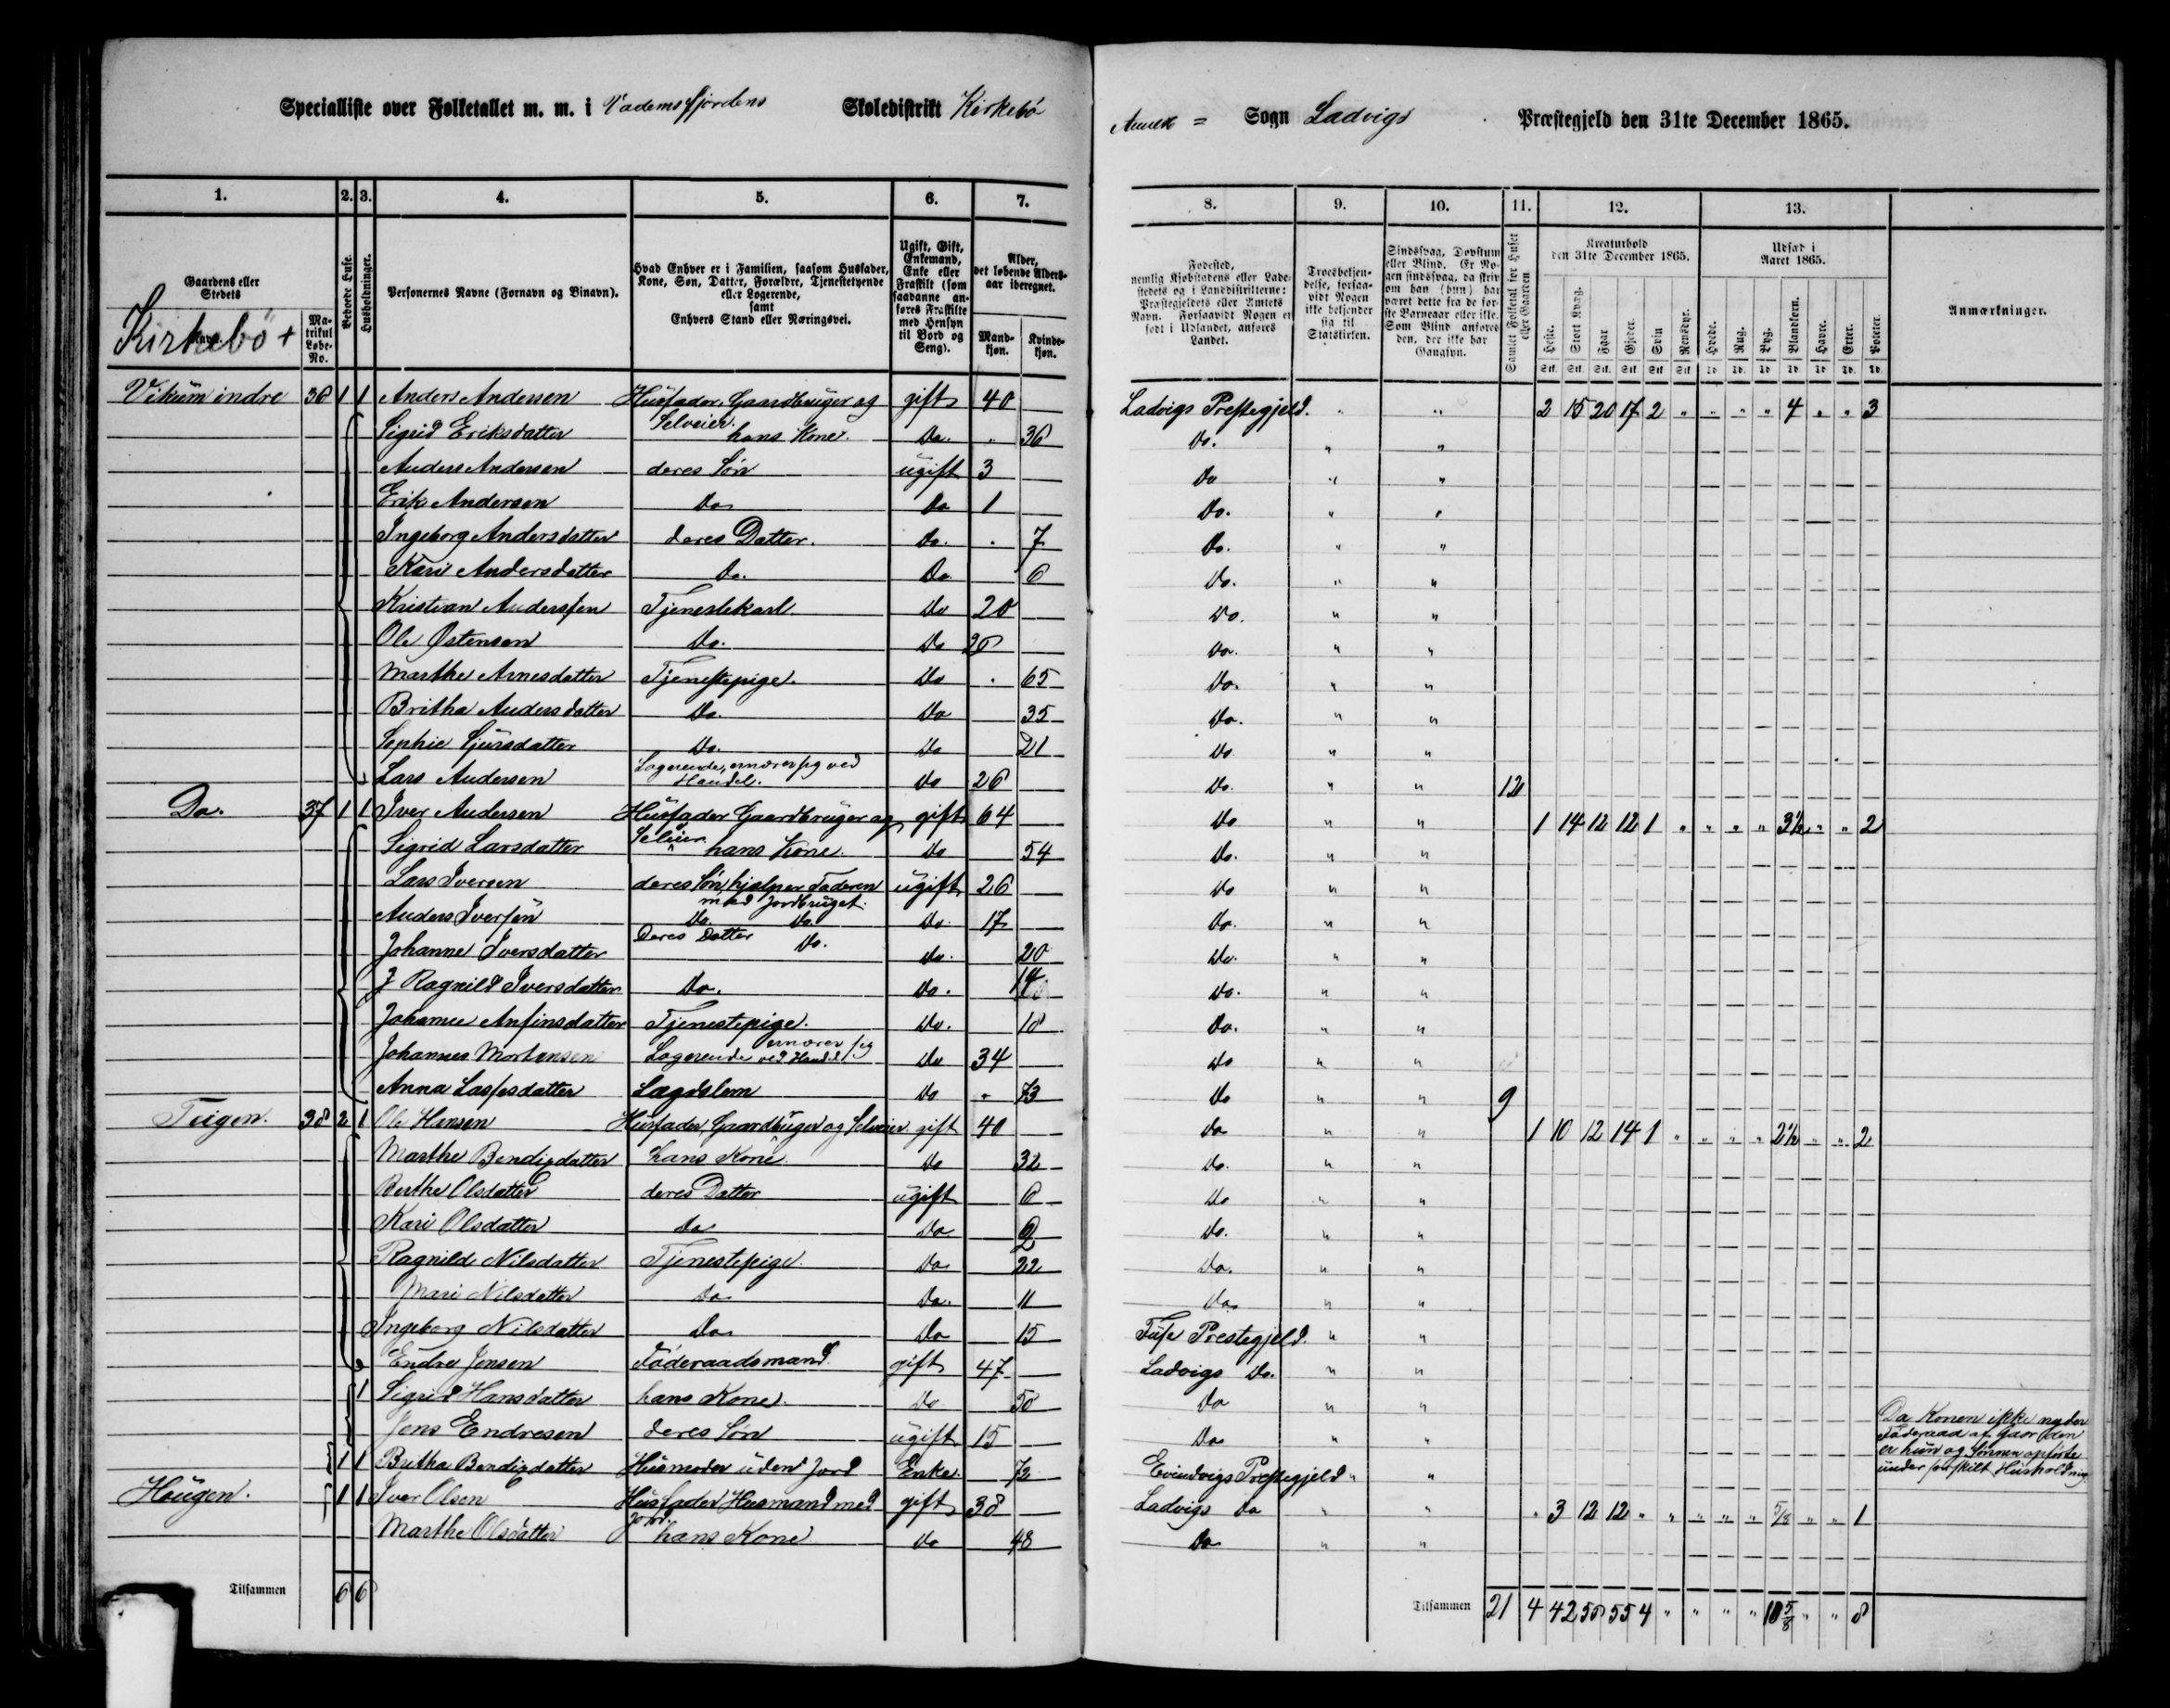 Specialliste over Folketallet m. m. i Vademsfjordens Skoledistrikt Kirkebö
Annex = Sogn Ladvigs Præstegjeld den 31te December 1865.
1. 2. 3. 4. 5. 6. 7. 8. 9. 10. 11. 12. 13.
Gaardens eller Stedets
Kirkebö +
Navn.
Matrikul Løbe-No.
Beboede Huse.
Husholdninger.
Personernes Navne (Fornavn og Binavn).
Hvad Enhver er i Familien, saasom Husfader, Kone, Søn, Datter, Forældre, Tjenestetyende eller Logerende, samt Enhvers Stand eller Næringsvei.
Ugift, Gift, Enkemand, Enke eller Fraskilt (som saadanne anføres Fraskilte med Hensyn til Bord og Seng).
Alder, det løbende Alders-aar iberegnet.
Mandkjøn. Kvindekjøn.
Fødested, nemlig Kjøbstadens eller Ladestedets og i Landdistrikterne: Præstegjeldets eller Amtets Navn. Forsaavidt Nogen er født i Udlandet, anføres Landet.
Troesbekjendelse, forsaavidt Nogen ikke bekjender sig til Statskirken.
Sindssvag, Døvstum eller Blind. Er Nogen sindssvag, da skrives om han (hun) har været dette fra de første Barneaar eller ikke. Som Blind anføres den, der ikke har Gangsyn.
Samlet Folketal for Huset eller Gaarden
Kreaturhold den 31te December 1865.
Heste. Stort Kvæg. Faar Gjeder. Svin Rensdyr.
Udsæd i Aaret 1865.
Hvede. Rug. Byg. Blandkorn. Havre. Erter. Poteter.
Anmærkninger.
Vikum indre 36 1 1 Anders Andersen Husfader, Gaardbruger og Selveier. gift 40 Ladvigs Prestegjeld. " " 2 15 20 17 2 " " " " 4 " " 3
Sigrid Eriksdatter hans Kone. Do. " 36 Do. " "
Anders Andersen deres Søn ugift 3 Do " "
Erik Andersen Do Do 1 Do. " "
Ingeborg Andersdatter deres Datter. Do. " 7 Do. " "
Kari Andersdatter Do. Do 6 Do. " "
Kristian Anderssen Tjenestekarl Do 20 Do. " "
Ole Østensen Do. Do 26 Do. " "
Marthe Arnesdatter Tjenestepige. Do " 65 Do. " "
Britha Andersdatter Do. Do 35 Do. " "
Sophie Sjursdatter Do. Do 21 Do " "
Lars Andersen Logerende, ernærer sig ved Handel. Do 26 Do. " " 12
Do. 37 1 1 Iver Andersen Husfader Gaardbruger og Selveier gift 64 Do " " 1 14 12 12 1 " " " " 3½ " " 2
Sigrid Larsdatter hans Kone. Do 54 Do. " "
Lars Iversen deres Søn, hjelper Faderen med Jordbruget. ugift 26 Do " "
Anders Iversen Do. Do. Do. 17 Do. " "
Johanne Iversdatter Deres Datter Do. do. 20 Do. " "
Ragnild Iversdatter Do. Do. 14 Do. " "
Johanne Anfinsdatter Tjenestepige. Do. 18 Do. " "
Johannes Mortensen Logerende ernærer sig ved Handel Do 34 Do " "
Anna Lassesdatter Lægdslem Do " 73 Do " " 9
Teigen. 38 2 1 Ole Hansen Husfader, Gaardbruger og Selveier gift 40 Do " " 1 10 12 14 1 " " " " 2½ " " 2
Marthe Bendigdatter hans Kone. Do 32 Do. " "
Berthe Olsdatter deres Datter ugift 6 Do " "
Kari Olsdatter Do Do 2 Do. " "
Ragnilde Nilsdatter Tjenestepige. Do 22 Do. " "
Mari Nilsdatter Do Do. 11 Do " "
Ingeborg Nilsdatter Do Do 15 Fuse Prestegjeld. " "
Endre Jensen Föderaadsmand. gift 47 Ladvigs Do. " "
1 Sigrid Hansdatter hans Kone. Do 50 Do " "
Jens Endresen deres Søn ugift 15 Do " "
Da Konen ikke nyder
Föderaad af Gaarden
er hun og Sönnen opförte
under særskilt Husholdning
1 1 Britha Bendigdatter Husmoder uden Jord Enke. 72 Evindvigs Prestegjeld " "
Haugen. 1 1 Iver Olsen Husfader Husmand med Jord. gift 38 Ladvigs Do " " " 3 12 12 " " " " " 5/8 " " 1
Marthe Olsdatter hans Kone Do 48 Do " "
Tilsammen 6 6
Tilsammen 21 4 42 56 55 4 " " " " 10 5/8 " " 8